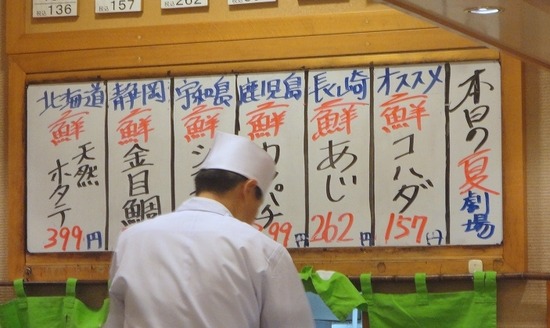 税込136
税込157
本日の夏劇場
オススメ
鮮
コハダ
157円
長崎
鮮
あじ
262円
鹿児島
鮮
パチ
99円
宇和島
鮮
静岡
鮮
金目鯛
北海道
鮮
天然
ホタテ
399円